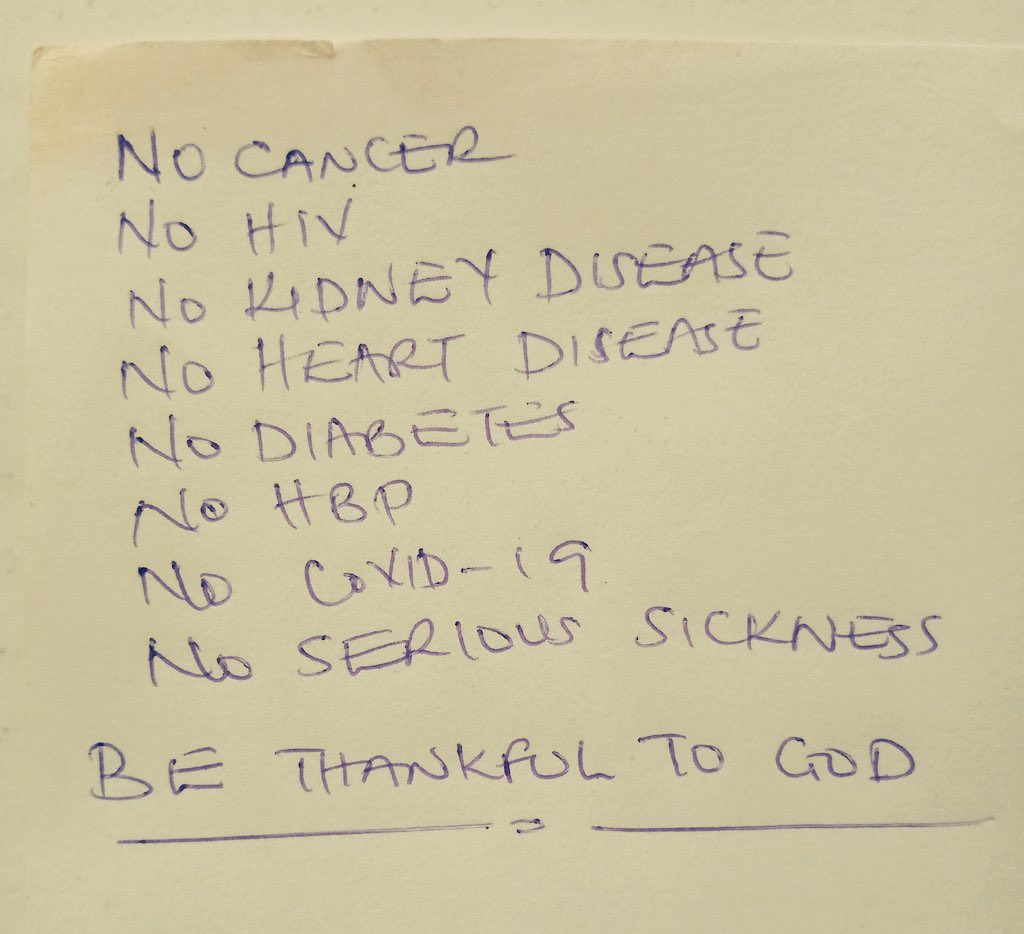 NO CANCER
NO HIV
NO KIDNEY DISEASE
NO HEART DISEASE
NO DIABETES
NO HBP
NO COVID-19
NO SERIOUS SICKNESS
BE THANKFUL TO GOD